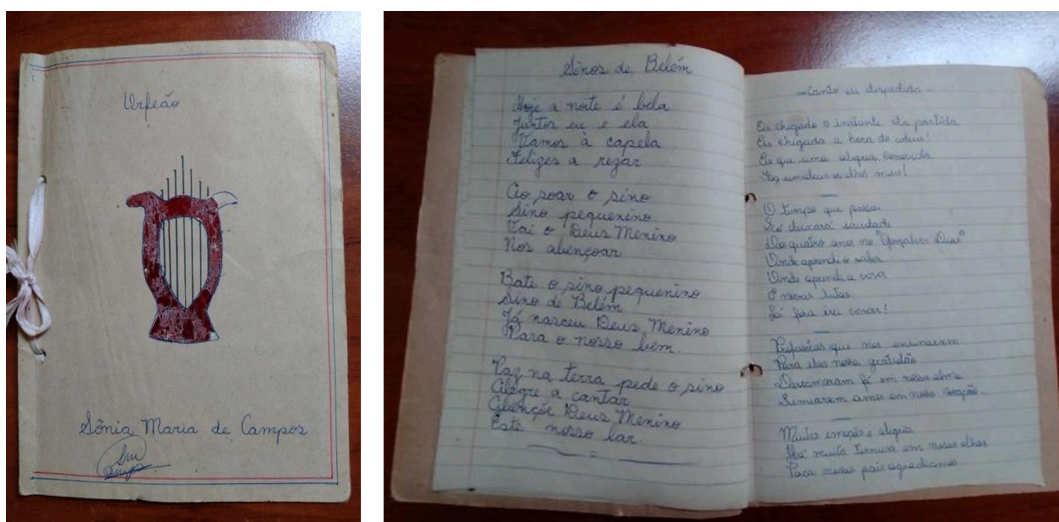 Orfeão
Sônia Maria de Campos
Sinos de Belém
Hoje a noite é bela
Juntos eu e ela
Vamos à capela
Felizes a rezar
Ao soar o sino
Sino pequenino
Vai o Deus Menino
Nos abençoar
Bate o sino pequenino
Sino de Belém
Já nasceu Deus Menino
Para o nosso bem.
Paz na terra pede o sino
Alegre a cantar
Abençõe Deus Menino
Este nosso lar.
- Canto de despedida -
Eis chegado o instante da partida
Eis chegada a hora do adeus!
Eis que uma alegria comovida
Faz umedecer os olhos meus!
O tempo que passou
Só deixará saudade
Dos quatro anos no "Gonçalves Dias"
Onde aprendi o saber
Onde aprendi a
E novas lutas
Lá fora irei vencer!
Professores que nos ensinaram
Para eles nossa gratidão
Derramaram fé em nossa alma
Semearam amor em nosso coração.
Muitas emoções e alegria
Há muita ternura em nosso olhar
Para nossos pais agradecemos